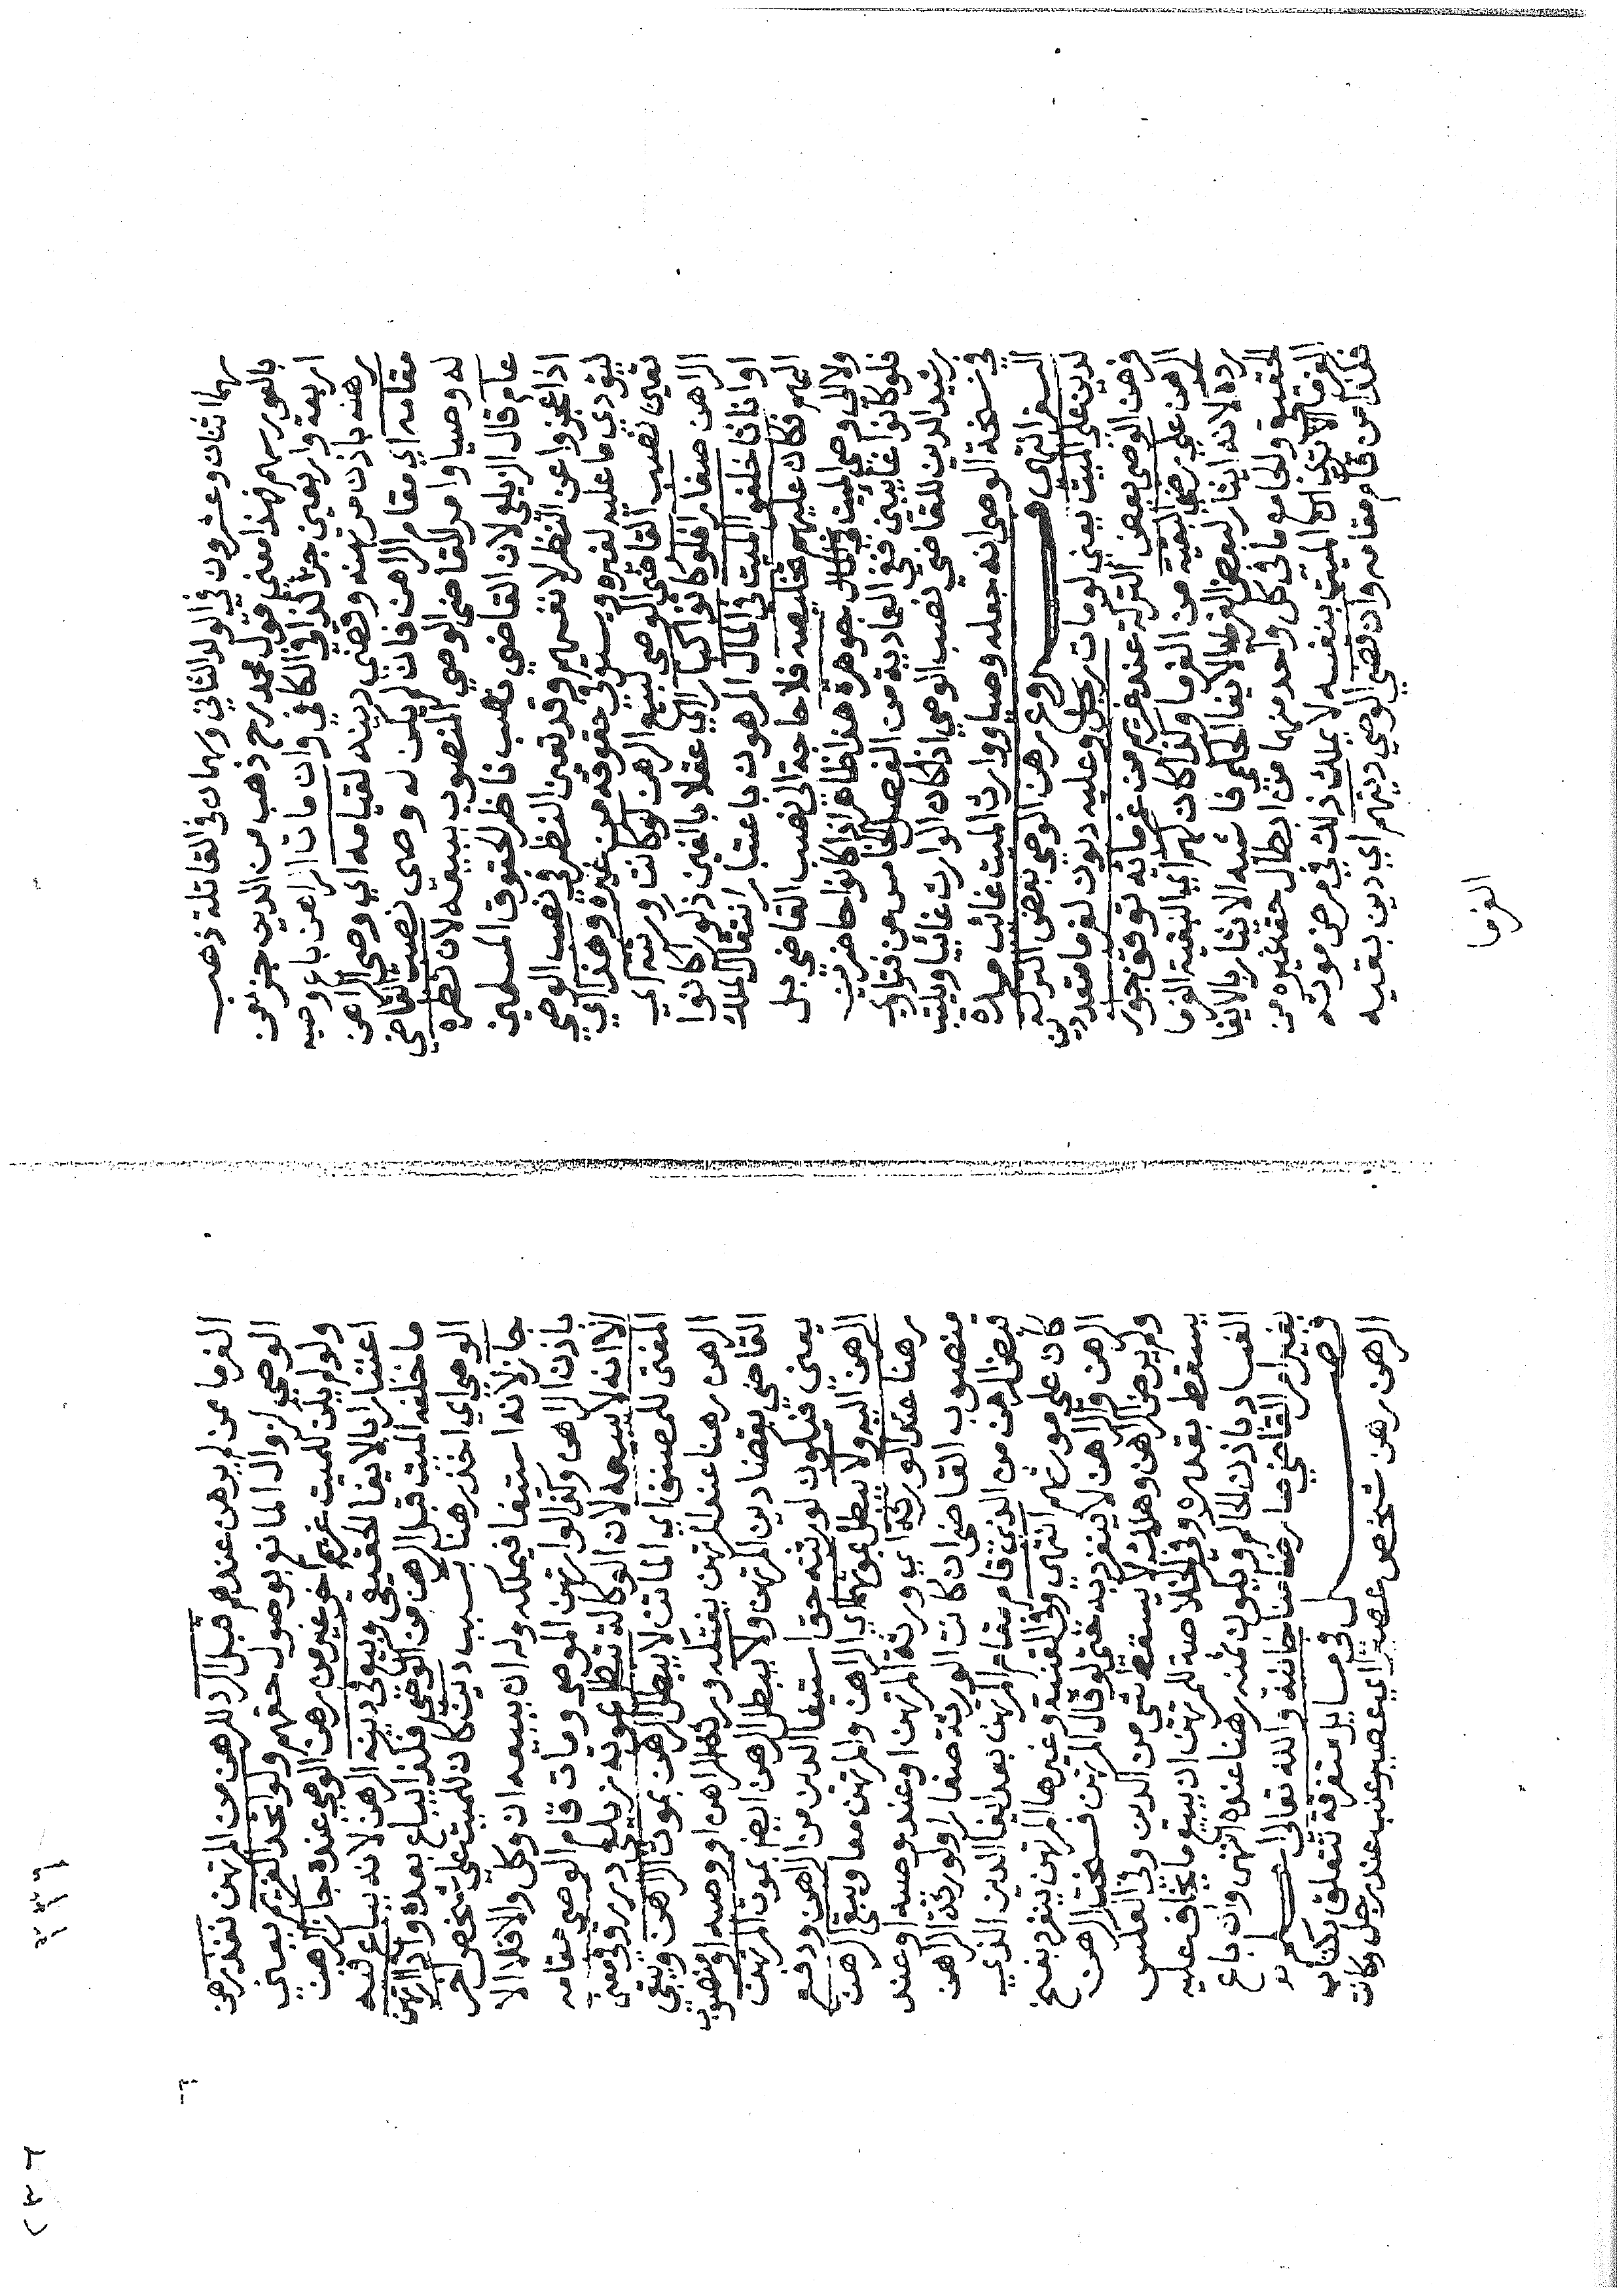 سهما اثنان وعشرون في الولد الثاني وسهمان في القاتلة ذهب
بالعور سهم فهذا معني قول محمد رح ذهب من الدين جزء من
اربعة واربعين جزأ كذا في الكافي وان مات الراهن باع وصيه
رهنه باذن مرتهنه وقضي دينه لقيامه اي وصي الراهن
مقامه اي مقام الراهن فان لم يكن له وصي نصب القاضي
له وصيا وامر القاضي الوصي المنصوب ببيعه لان نظره
عام قال الزيلعي لان القاضي نصب ناظرا لحقوق المسلمين
اذا عجزوا عن النظر لانفسهم وقد تعين النظر في نصب الوصي
ليؤدي ما عليه لغيره ويستوفي حقوقه من غيره وهذا اي
تعين نصب القاضي الوصي لبيع الرهن لو كانت ورثته اي
الراهن صغارا فلو كانوا كبارا اي عقلا بالغين ذكورا كانوا
او اناثا خلفوا الميت في المال المرهون باعتبار انتقال الملك
اليهم فكان عليهم تخليصه فلا حاجة الي نصب القاضي بل
ولا الي وصي الميت في المال جوهرة هذا ظاهر اذا كانوا حاضرين
فلو كانوا غايبين ففي العمادية من الفصل الخامس من فتاوي
رشيد الدين للقاضي نصب الوصي اذا كان الوارث غائبا ويكتب
في نسخة الوصي انه جعله وصيا ووارث الميت غائب مدة
السفر انتهي فروع رهن الوصي بعض التركة
لدين علي الميت يعني لو مات رجل وعليه ديون لغرما متعددين
فرهن الوصي بعض التركة عند غريم من غرمائه توقف جواز
الرهن علي رضي البقية من الغرما وكذا كان لهم اي لبقية الغرما
رده لانه ايثار لبعض الغرما بالايفا الحكمي فاشبه الايثار بالايفا
الحقيقي والجامع ما في كل واحد منهما من ابطال حق غيره من
الغرما الا تري ان الميت بنفسه لا يملك ذلك في مرض موته
فكذا من قام مقامه وان قضي الوصي دينهم اي دين بقية
الغرما
الغرما ممن لم يرهن عندهم قبل الرد للرهن من المرتهن نفذ رهن
الوصي لزوال المانع بوصول حقهم ولو اتحد الغريم يعني
ولو لم يكن للميت غريم اخر غير من رهن الوصي عنده جاز الرهن
اعتبارا بالايفا الحقيقي وبيع في دينه الرهن لانه يباع فيه
ما خلفه الميت قبل الرهن من الوصي فكذا يباع بعده واذا ارتهن
الوصي اي اخذ رهنا بسبب دين كان للميت علي شخص اخر
جاز لانه استيفا فيملكه وله ان يبيعه ان وكل والا فلا الا
باذن الراهن وكذا لو ارتهن الموصي ومات قام الوصي مقامه
الا انه لا يبيعه لان الوكالة تبطل بموته زيلعي درر وفي معني
المفتي للمصنف اي الماتن لا يبطل الرهن بموت الراهن ويبقي
الرهن رهنا عند المرتهن يفتكه ورثة الراهن او وصيه او منصوب
القاضي بقضا دين المرتهن ولا يبطل الرهن ايضا بموت المرتهن
يعني فيكون لورثته حق استيفا الدين من الراهن ودفع
الرهن اليه ولا يبطل بموتهما اي الراهن والمرتهن معا ويبقي الرهن
رهنا عند الورثة اي ورثة المرتهن او عند وصيه او عند
منصوب القاضي ان كانت الورثة صغارا ولورثة الراهن
قبض الرهن من الذي قام مقام المرتهن بعد ايفا الدين الذي
كان علي مورثهم انتهي وفي القنية وغيرها المرتهن ينفرد بفسخ
الرهن والراهن لا ينفرد به حتي لو قال المرتهن فسخت الرهن
ولم يرض الراهن وهلك لا يسقط شي من الدين وفي العكس
يسقط بقدره وفي الخلاصة للمرتهن ان يبيع ما يخاف عليه
الفساد باذن الحاكم ويكون ثمنه رهنا عنده انتهي وان باع
بغير امر القاضي صار ضامنا خانية والله تعالي اعلم
فصل في مسايل متفرقة تتعلق بكتاب
الرهن رهن شخص عصيرا اي عصير عنب عند رجل وكان